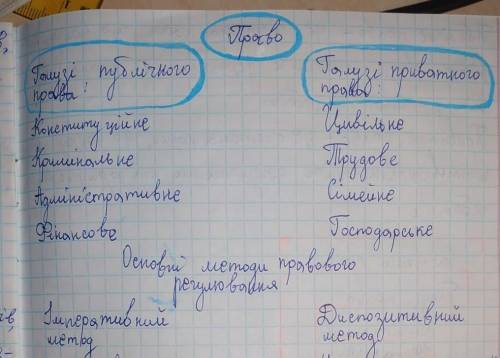 Право
Галузі публічного
права:
Галузі приватного
права:
Конституційне
Цивільне
Кримінальне
Трудове
Адміністративне
Сімейне
Фінансове
Господарське
Основні методи правового
регулювання
Імперативний
метод
Диспозитивний
метод